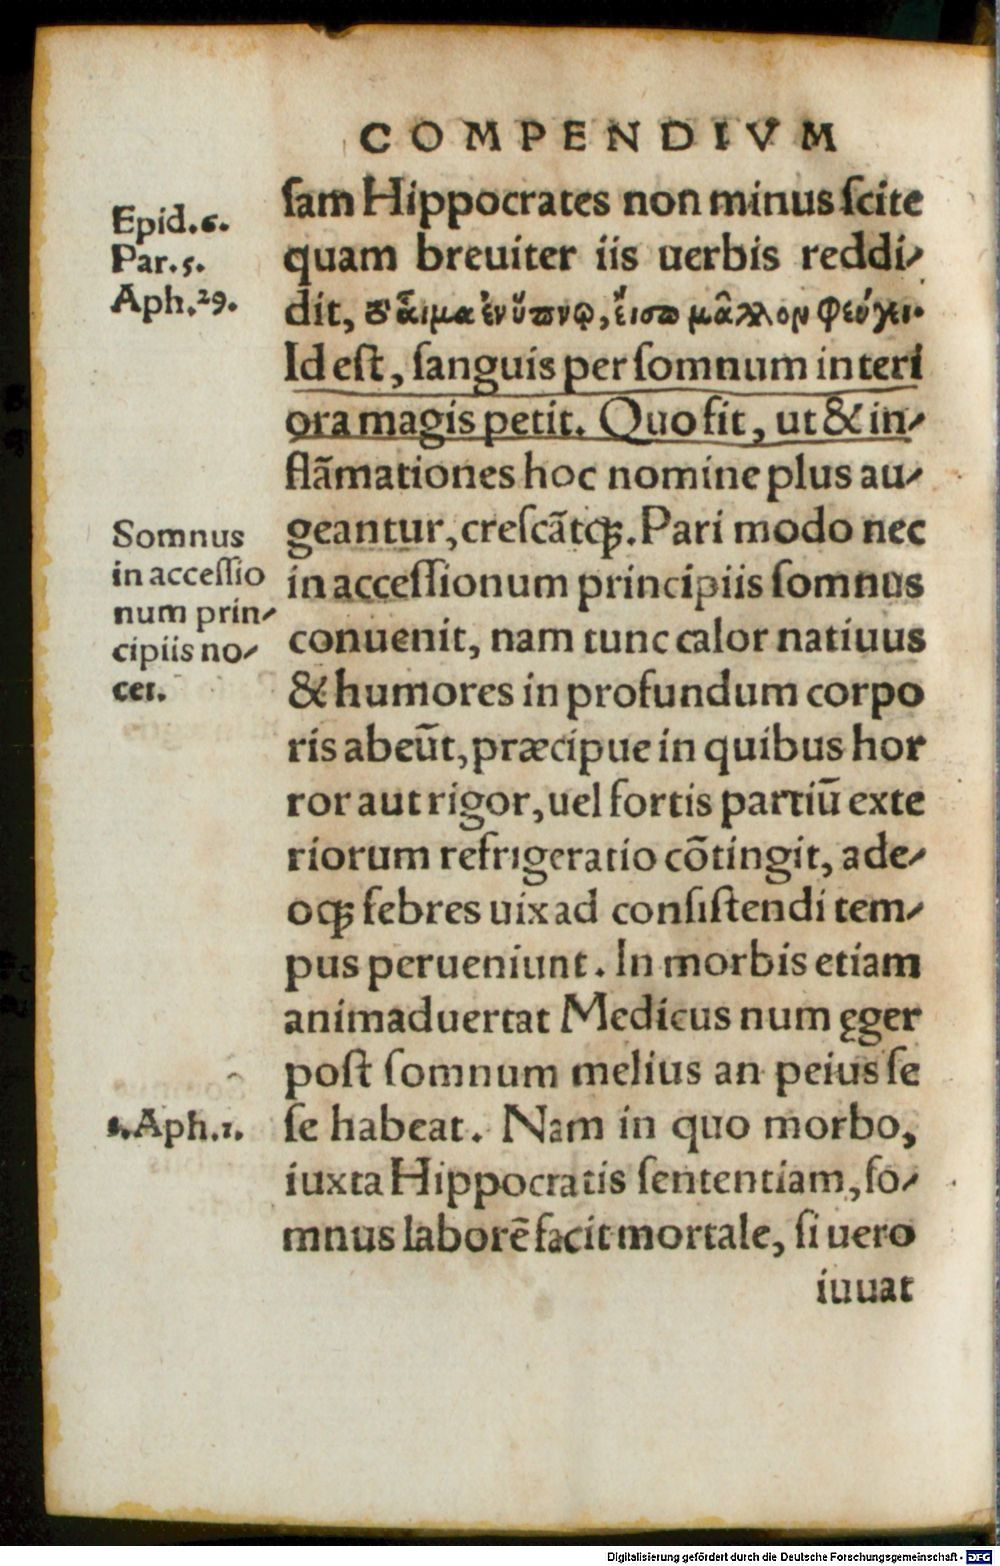 COMPENDIVM
Epid.6.
Par.5.
Aph.29.
ſam Hippocrates non minus ſcite
quam breuiter iis uerbis reddi-
dit, τὸ αἷμα ἐν ὕπνῳ, εἴσω μᾶλλον φεύγει.
Id eſt, ſanguis per ſomnum interi
ora magis petit. Quo fit, ut & in-
flãmationes hoc nomine plus au-
Somnus
in acceſſio
num prin-
cipiis no-
cet.
geantur, creſcãtꝗ;. Pari modo nec
in acceſſionum principiis ſomnus
conuenit, nam tunc calor natiuus
& humores in profundum corpo
ris abeũt, præcipue in quibus hor
ror aut rigor, uel fortis partiũ exte
riorum refrigeratio cõtingit, ade-
oꝗ; febres uix ad conſiſtendi tem-
pus perueniunt. In morbis etiam
animaduertat Medicus num ęger
poſt ſomnum melius an peius ſe
2.Aph.1.
ſe habeat. Nam in quo morbo,
iuxta Hippocratis ſententiam, ſo-
mnus laborẽ facit mortale, ſi uero
iuuat
Digitalisierung gefördert durch die Deutsche Forschungsgemeinschaft - DFG